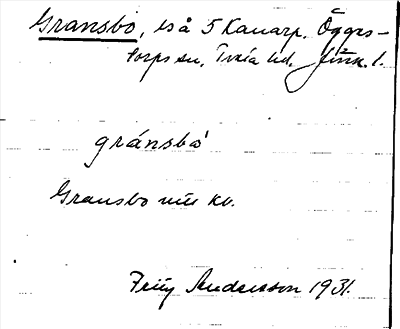 Gransbo, lså 5 Kanarp, Öggrs-
torps sn, Tveta hd. Jönk. l.
gránsbò
Gransbo
Andersson 1931.